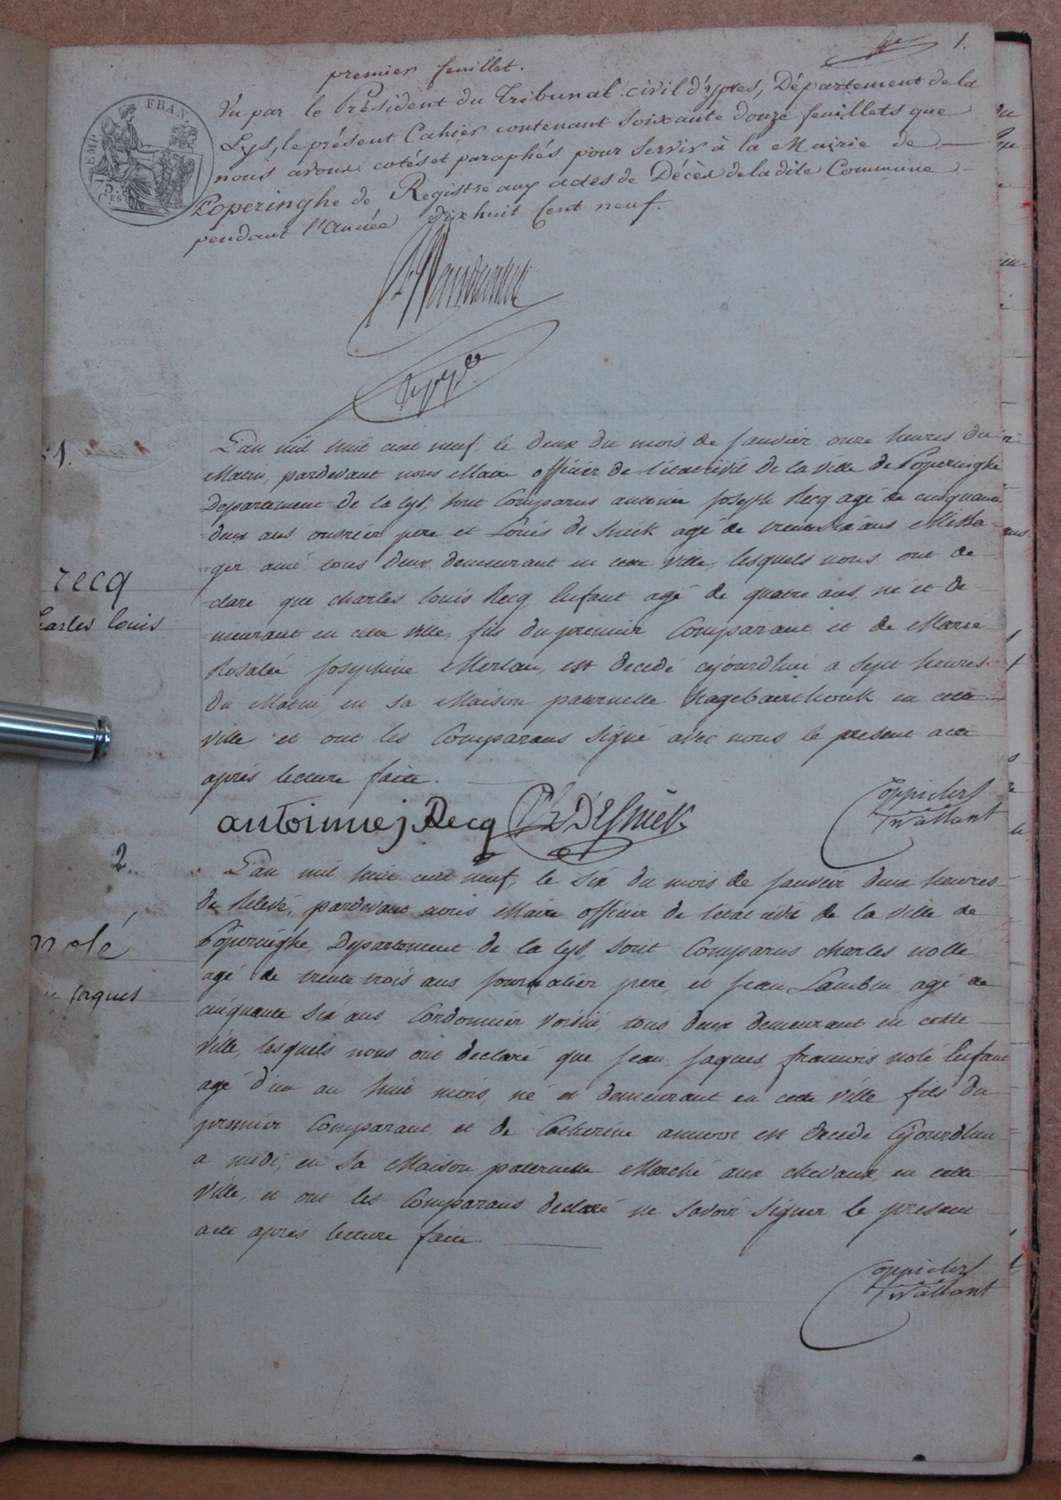 1.
premier feuillet.
Vu par le Président du Tribunal civil d'ypres, Département de la
Lys, le présent Cahier contenant soixante douze feuillets que
nous avons cotés et paraphés pour servir à la Mairie de
Poperinghe de Registre aux actes de Décès de la dite Commune
pendant l'Année dix huit Cent neuf.
EMP FRAN.
75.
1.
L'an mil huit cent neuf le deux du mois de janvier onze heures du
Matin, pardevant nous Maire officier de l'état civil de la ville de Poperinghe
Departement de la lys, sont Comparus antoine joseph Recq agé de cinquante
deux ans ouvrier pere et Louis de Snick agé de trente six ans Messa-
ger ami tous deux demeurant en cette ville, lesquels nous ont de-
claré que charles louis Recq Enfant agé de quatre ans, né et de-
meurant en cette ville, fils du premier Comparant et de Marie
Rosalie josephine Merlau, est decedé cejourdhui a sept heures
du Matin, en sa Maison paternelle hagebaerthouk en cette
ville et ont les Comparans signé avec nous le present acte
après lecture faite.
recq
charles louis
antoinne j Recq D'Esnick
Coppiders
Twallant
2.
L'an mil huit cent neuf, le six du mois de janvier deux heures
de Relevé, pardevant nous Maire officier de l'etat civil de la ville de
Poperinghe, Departement de la lys, sont Comparus charles nolle
agé de trente trois ans journalier pere, et jean Lambin agé de
cinquante six ans Cordonnier Voisin, tous deux demeurant en cette
ville, lesquels nous ont declaré que jean jaques francois nolé Enfant
agé d'un an huit mois, né et demeurant en cette ville fils du
premier Comparant et de Catherine est decedé Cejourdhui
a midi, en sa Maison paternelle Marché aux chevaux, en cette
ville, et ont les Comparans declaré ne savoir signer le present
acte après lecture faite
nolé
jaques
Coppiders
Twallant